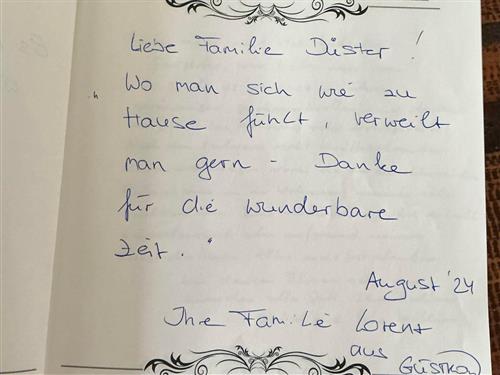 Liebe Familie Düster!
„Wo man sich wie zu
Hause fühlt, verweilt
man gern - Danke
für die wunderbare
Zeit."
August '24
Ihre Familie Lorenz
aus Güstrow